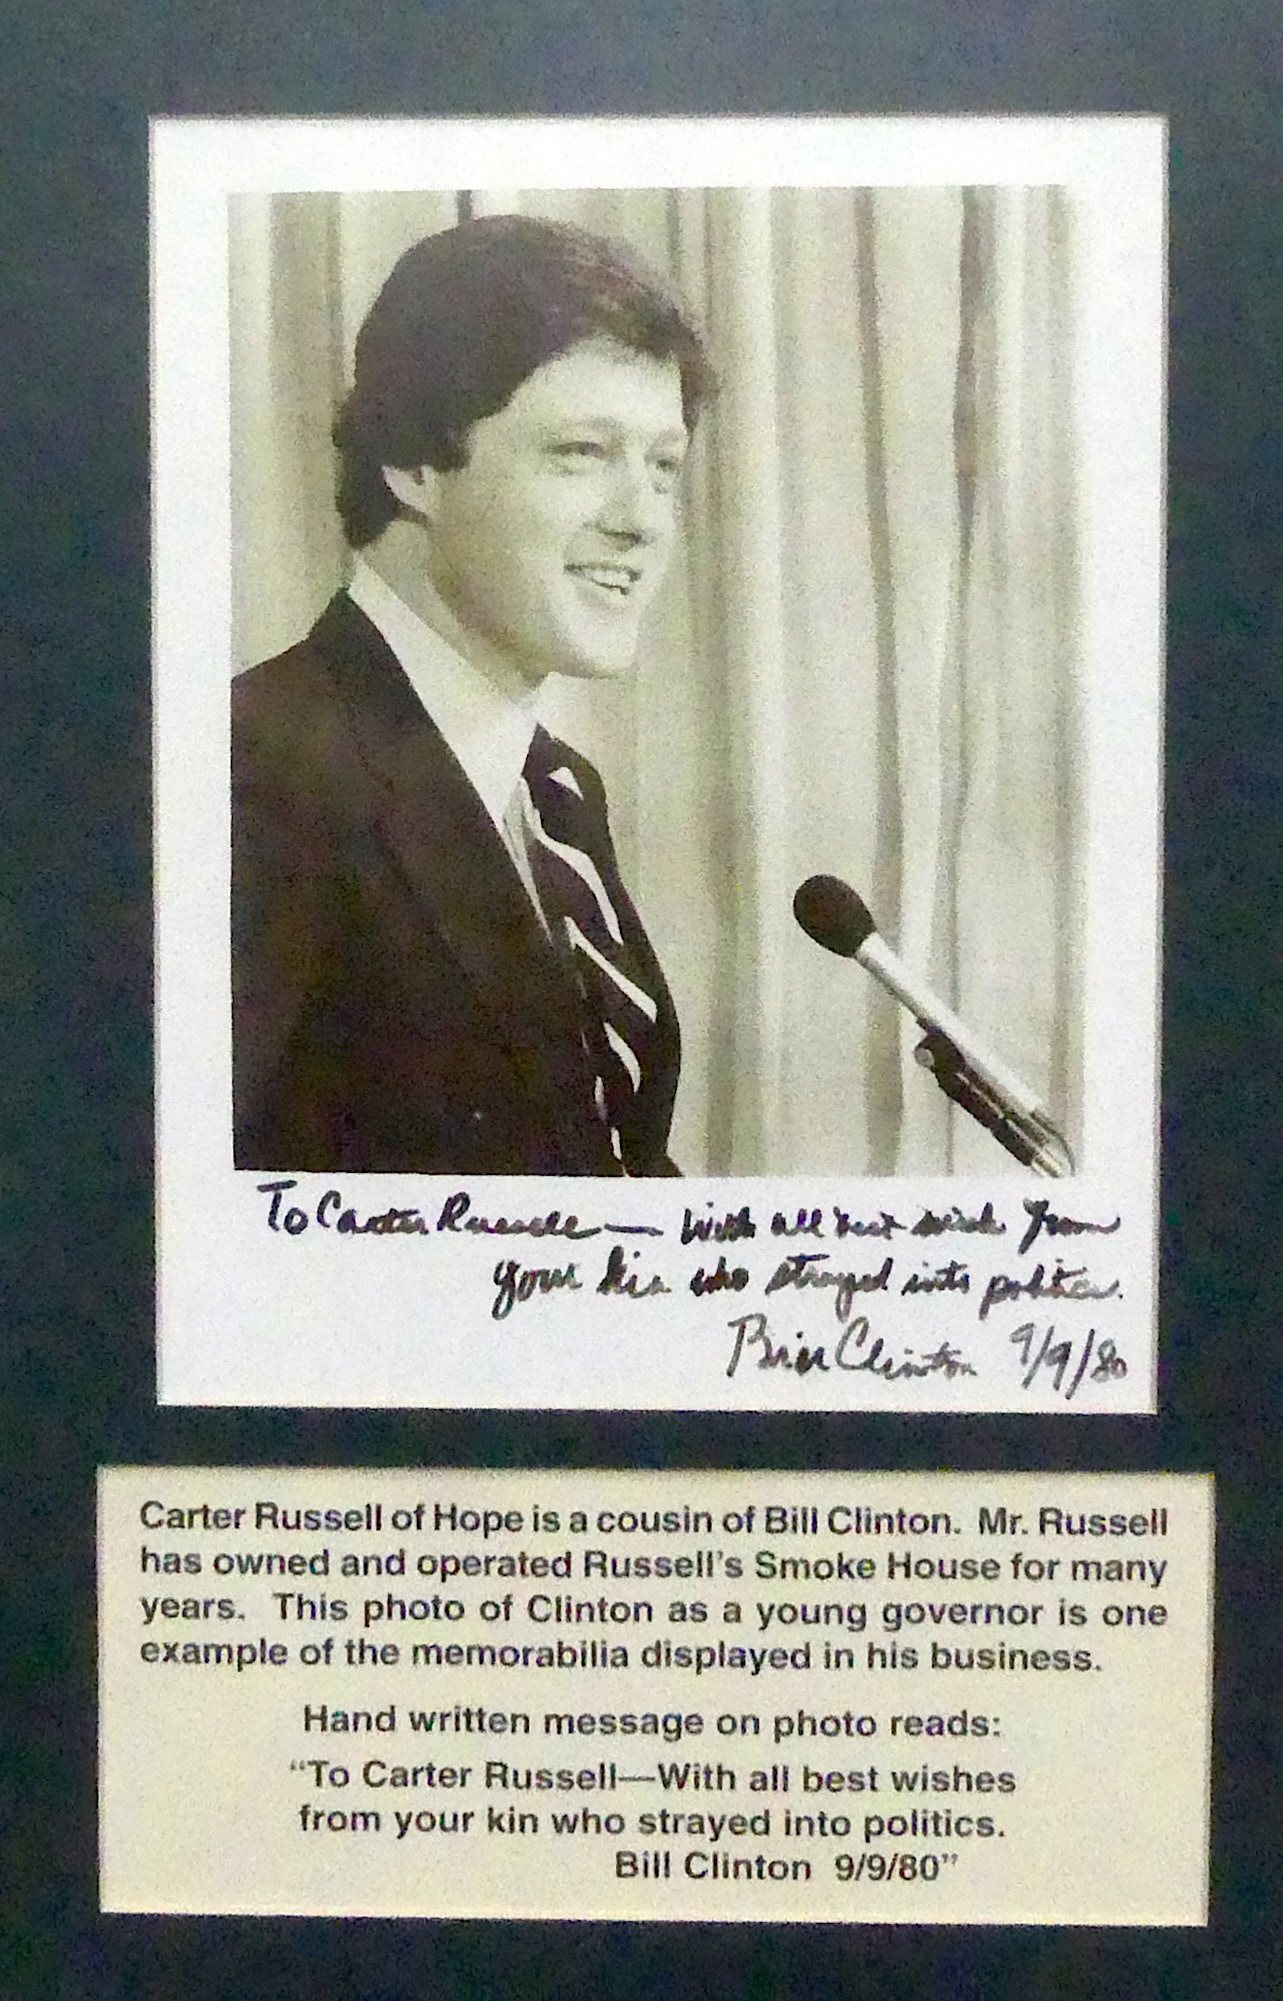 To Carter Russell — With all best wishes from
your kin who strayed into politics.
Bill Clinton 9/9/80
Carter Russell of Hope is a cousin of Bill Clinton. Mr. Russell
has owned and operated Russell's Smoke House for many
years. This photo of Clinton as a young governor is one
example of the memorabilia displayed in his business.
Hand written message on photo reads:
"To Carter Russell—With all best wishes
from your kin who strayed into politics.
Bill Clinton 9/9/80"